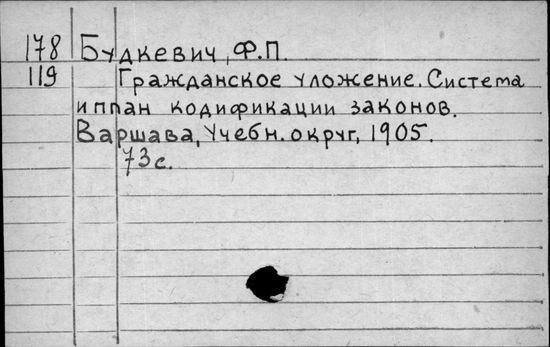 178 Будкевич, Ф.П.
119 Гражданское уложение. Система
и план кодификации законов.
Варшава, Учебн. округ, 1905.
73 с.